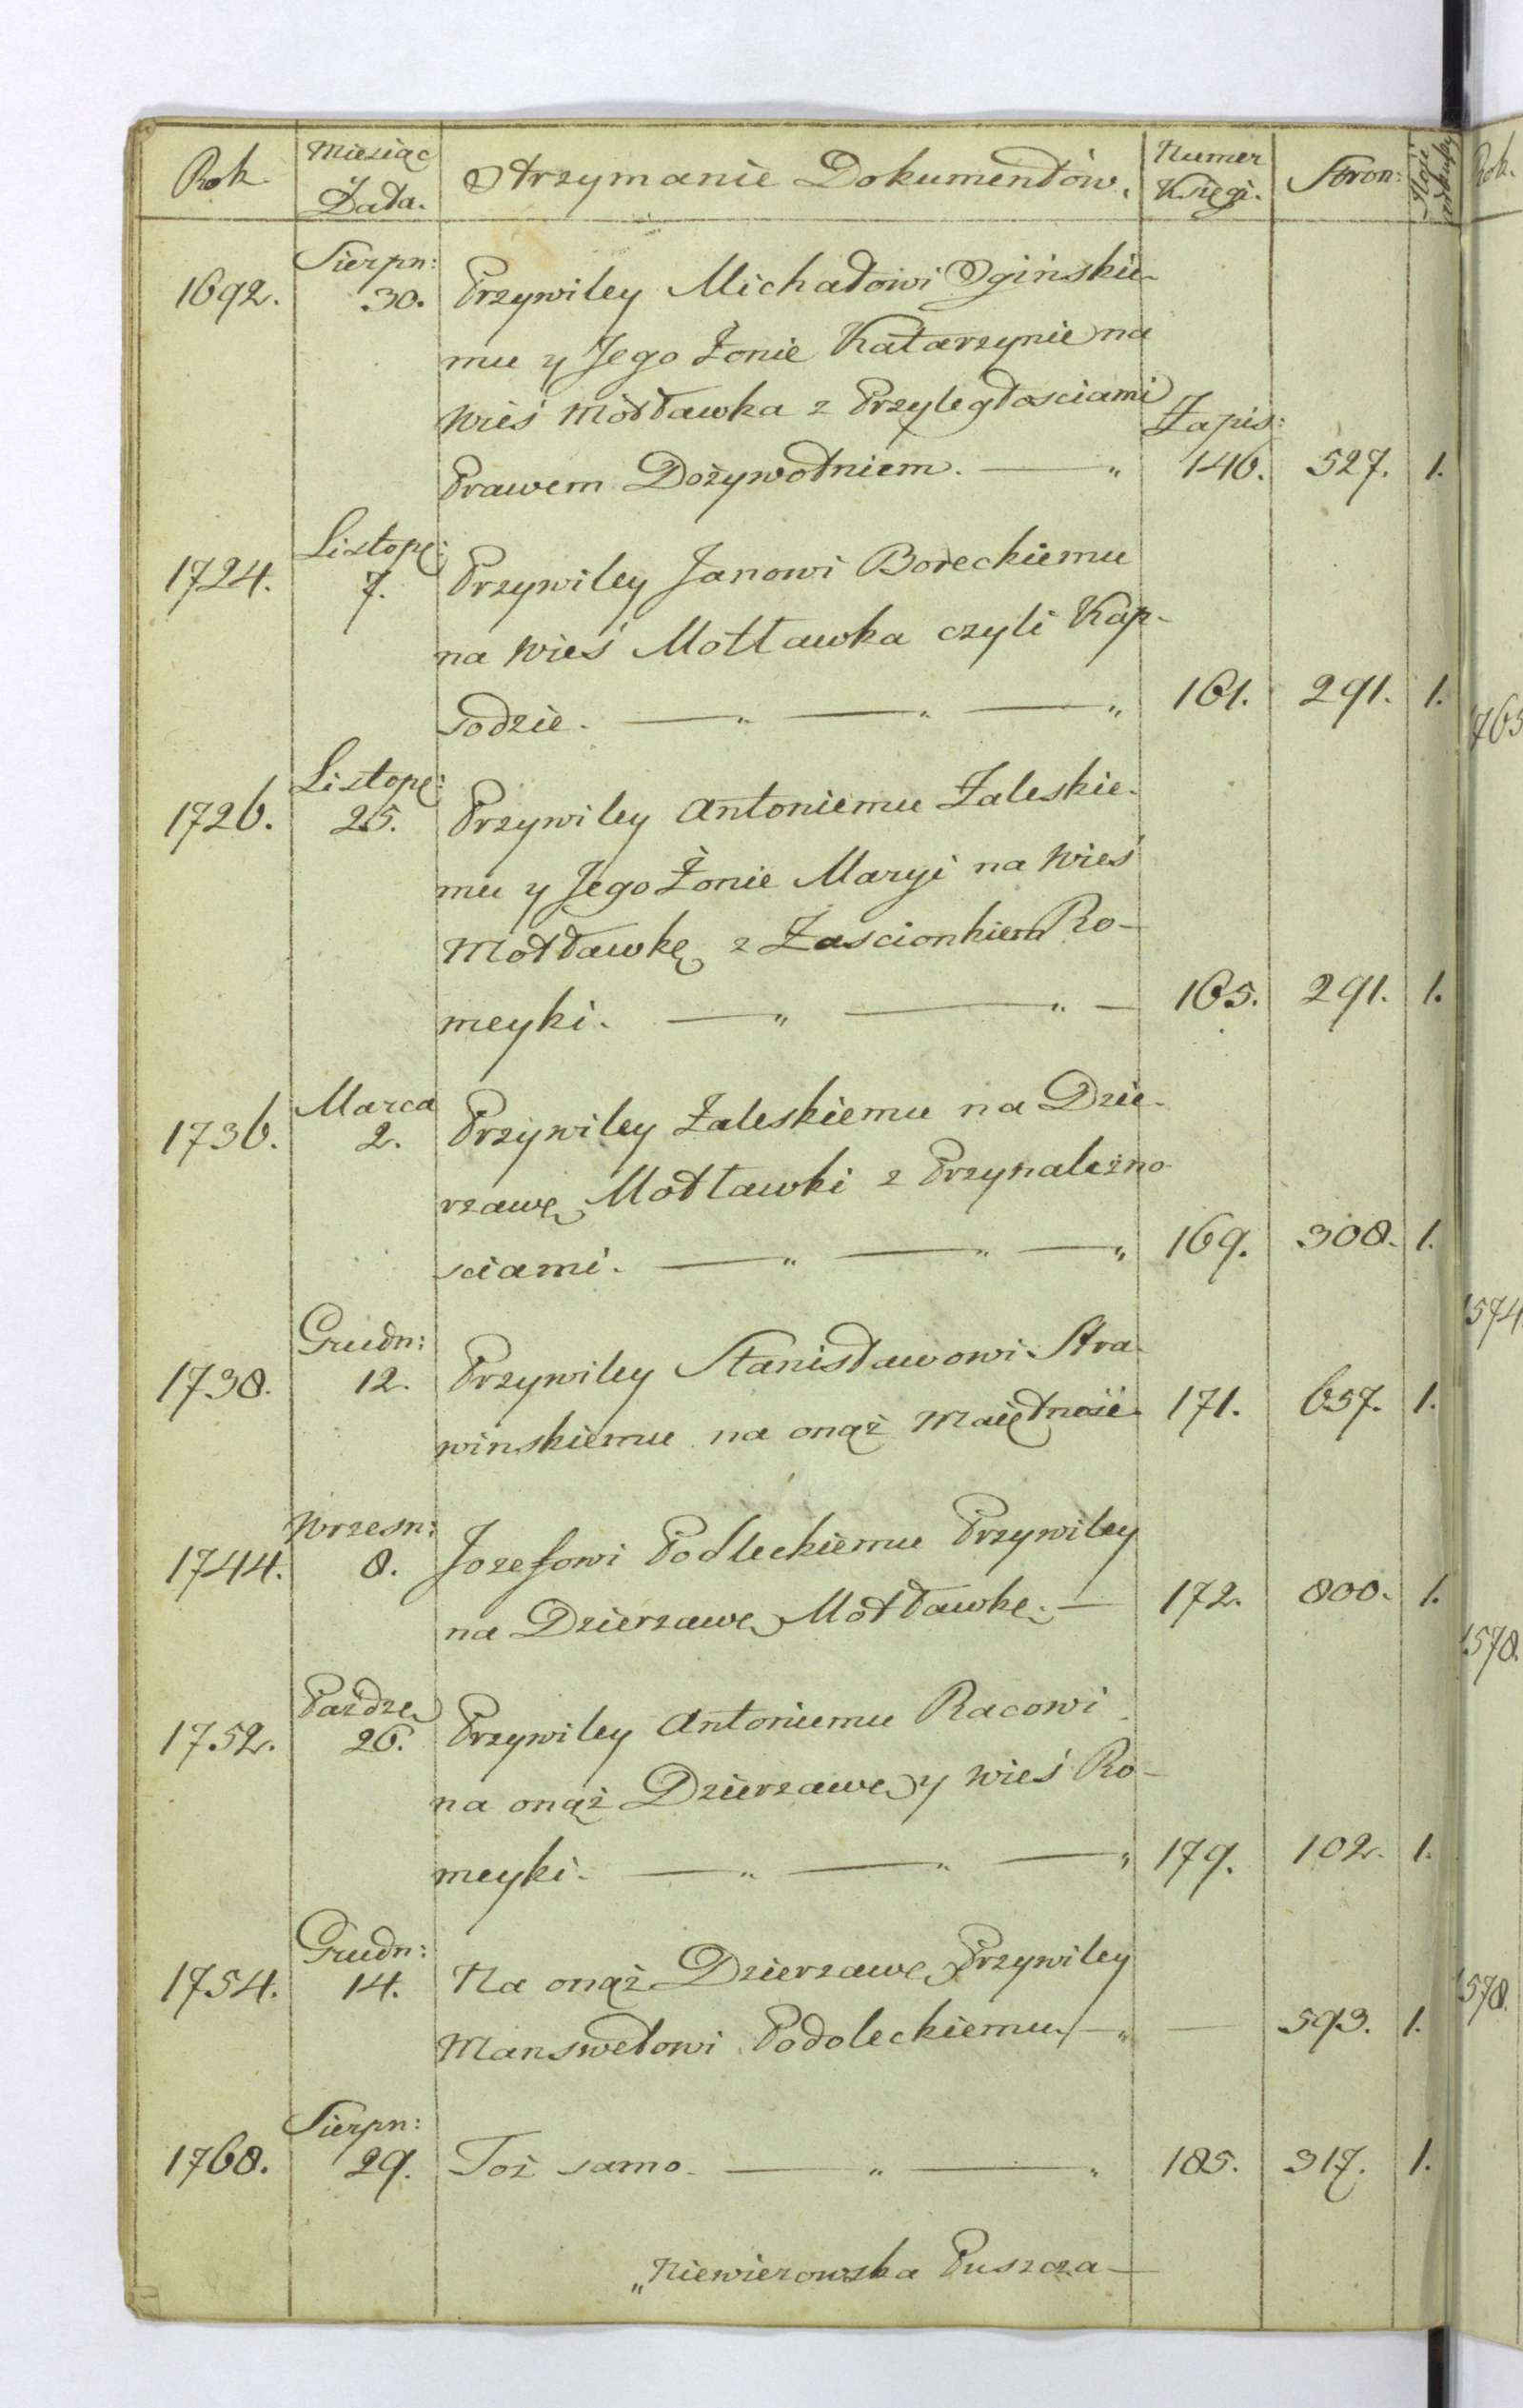 Rok. Miesiąc Data. Otrzymanie Dokumentów. Numer Księgi. Stron:
Sierpn:
1692. 30. Przywiley Michałowi Ogińskie-
mu y Jego Żonie Katarzynie na
Wieś Mołławka z Przyległosciami
Zapis:
Prawem Dożywotniem. — " 146. 527. 1.
Listopę:
1724. 7. Przywiley Janowi Boreckiemu
na Wieś Motławka czyli Kap-
sodzie. — " — " — " 161. 291. 1.
Listopę:
1726. 25. Przywiley Antoniemu Zaleskie-
mu y Jego Żonie Maryi na Wieś
Motławkę z Zascionkiem Ro-
meyki. — " — " — 165. 291. 1.
Marca
1736. 2. Przywiley Zaleskiemu na Dzie-
rzawę Motławki z Przynalezno-
sciami. — " — " — " 169. 308. 1.
Grudn:
1738. 12. Przywiley Stanisławowi Stra-
winskiemu na onąż Maiętność. 171. 657. 1.
Wrzesn:
1744. 8. Jozefowi Podleckiemu Przywiley
na Dzierzawę Motławkę. — 172. 800. 1.
Pazdze
1752. 26. Przywiley Antoniemu Racowi
na onąż Dzierzawę y wieś Ro-
meyki. — " — " — " 179. 102. 1.
Grudn:
1754. 14. Na onąż Dzierzawę Przywiley
Manswetowi Podoleckiemu. — " — 593. 1.
Sierpn:
1768. 29. Toż samo. — " — " 185. 317. 1.
"Niewierowska Puszcza —
Rok.
1574
1578.
1578.